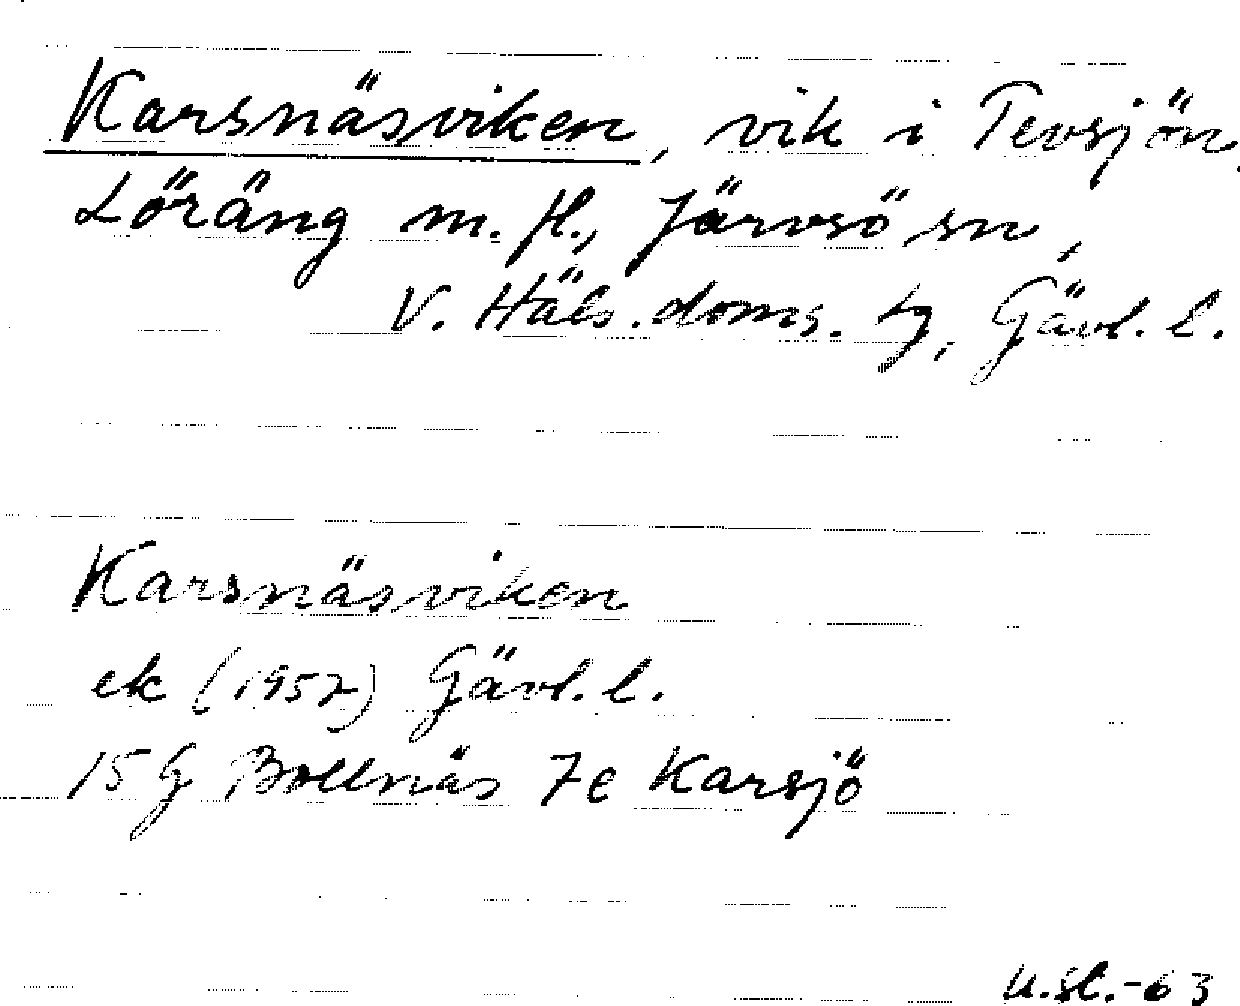 Karsnäsviken, vik i Tevsjön,
Löräng m. fl., Järvsö sn,
V. Häls. doms. tg, Gävl. l.
Karsnäsviken
ek (1957) Gävl. l.
15 G Bollnäs 7e Karsjö
U.St.-63